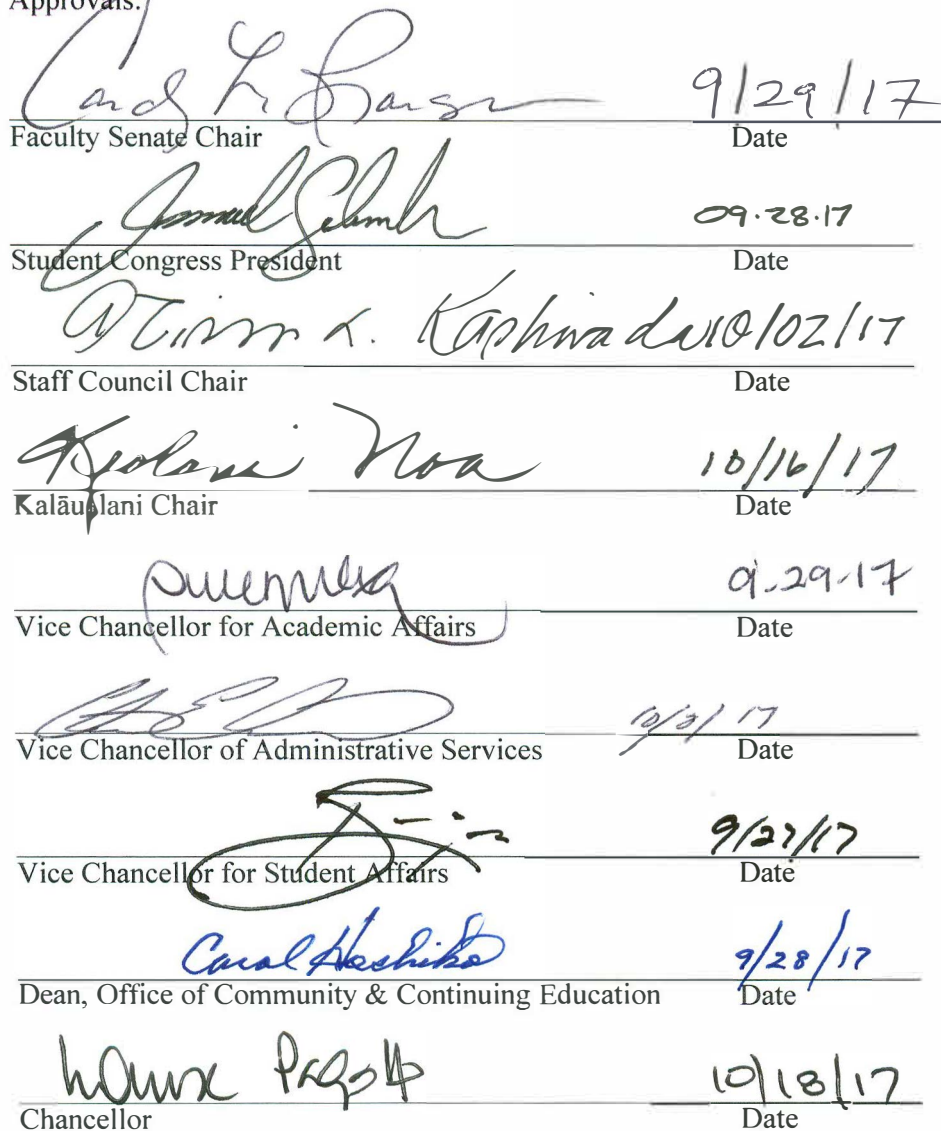 Approvals:
9/29/17
Faculty Senate Chair Date
09.28.17
Student Congress President Date
K. Kashiwada 10/02/17
Staff Council Chair Date
Noa 10/16/17
Kalāualani Chair Date
9.29.17
Vice Chancellor for Academic Affairs Date
17
Vice Chancellor of Administrative Services Date
9/27/17
Vice Chancellor for Student Affairs Date
Carol Hoshiko 9/28/17
Dean, Office of Community & Continuing Education Date
Louise Pagotto 10/18/17
Chancellor Date